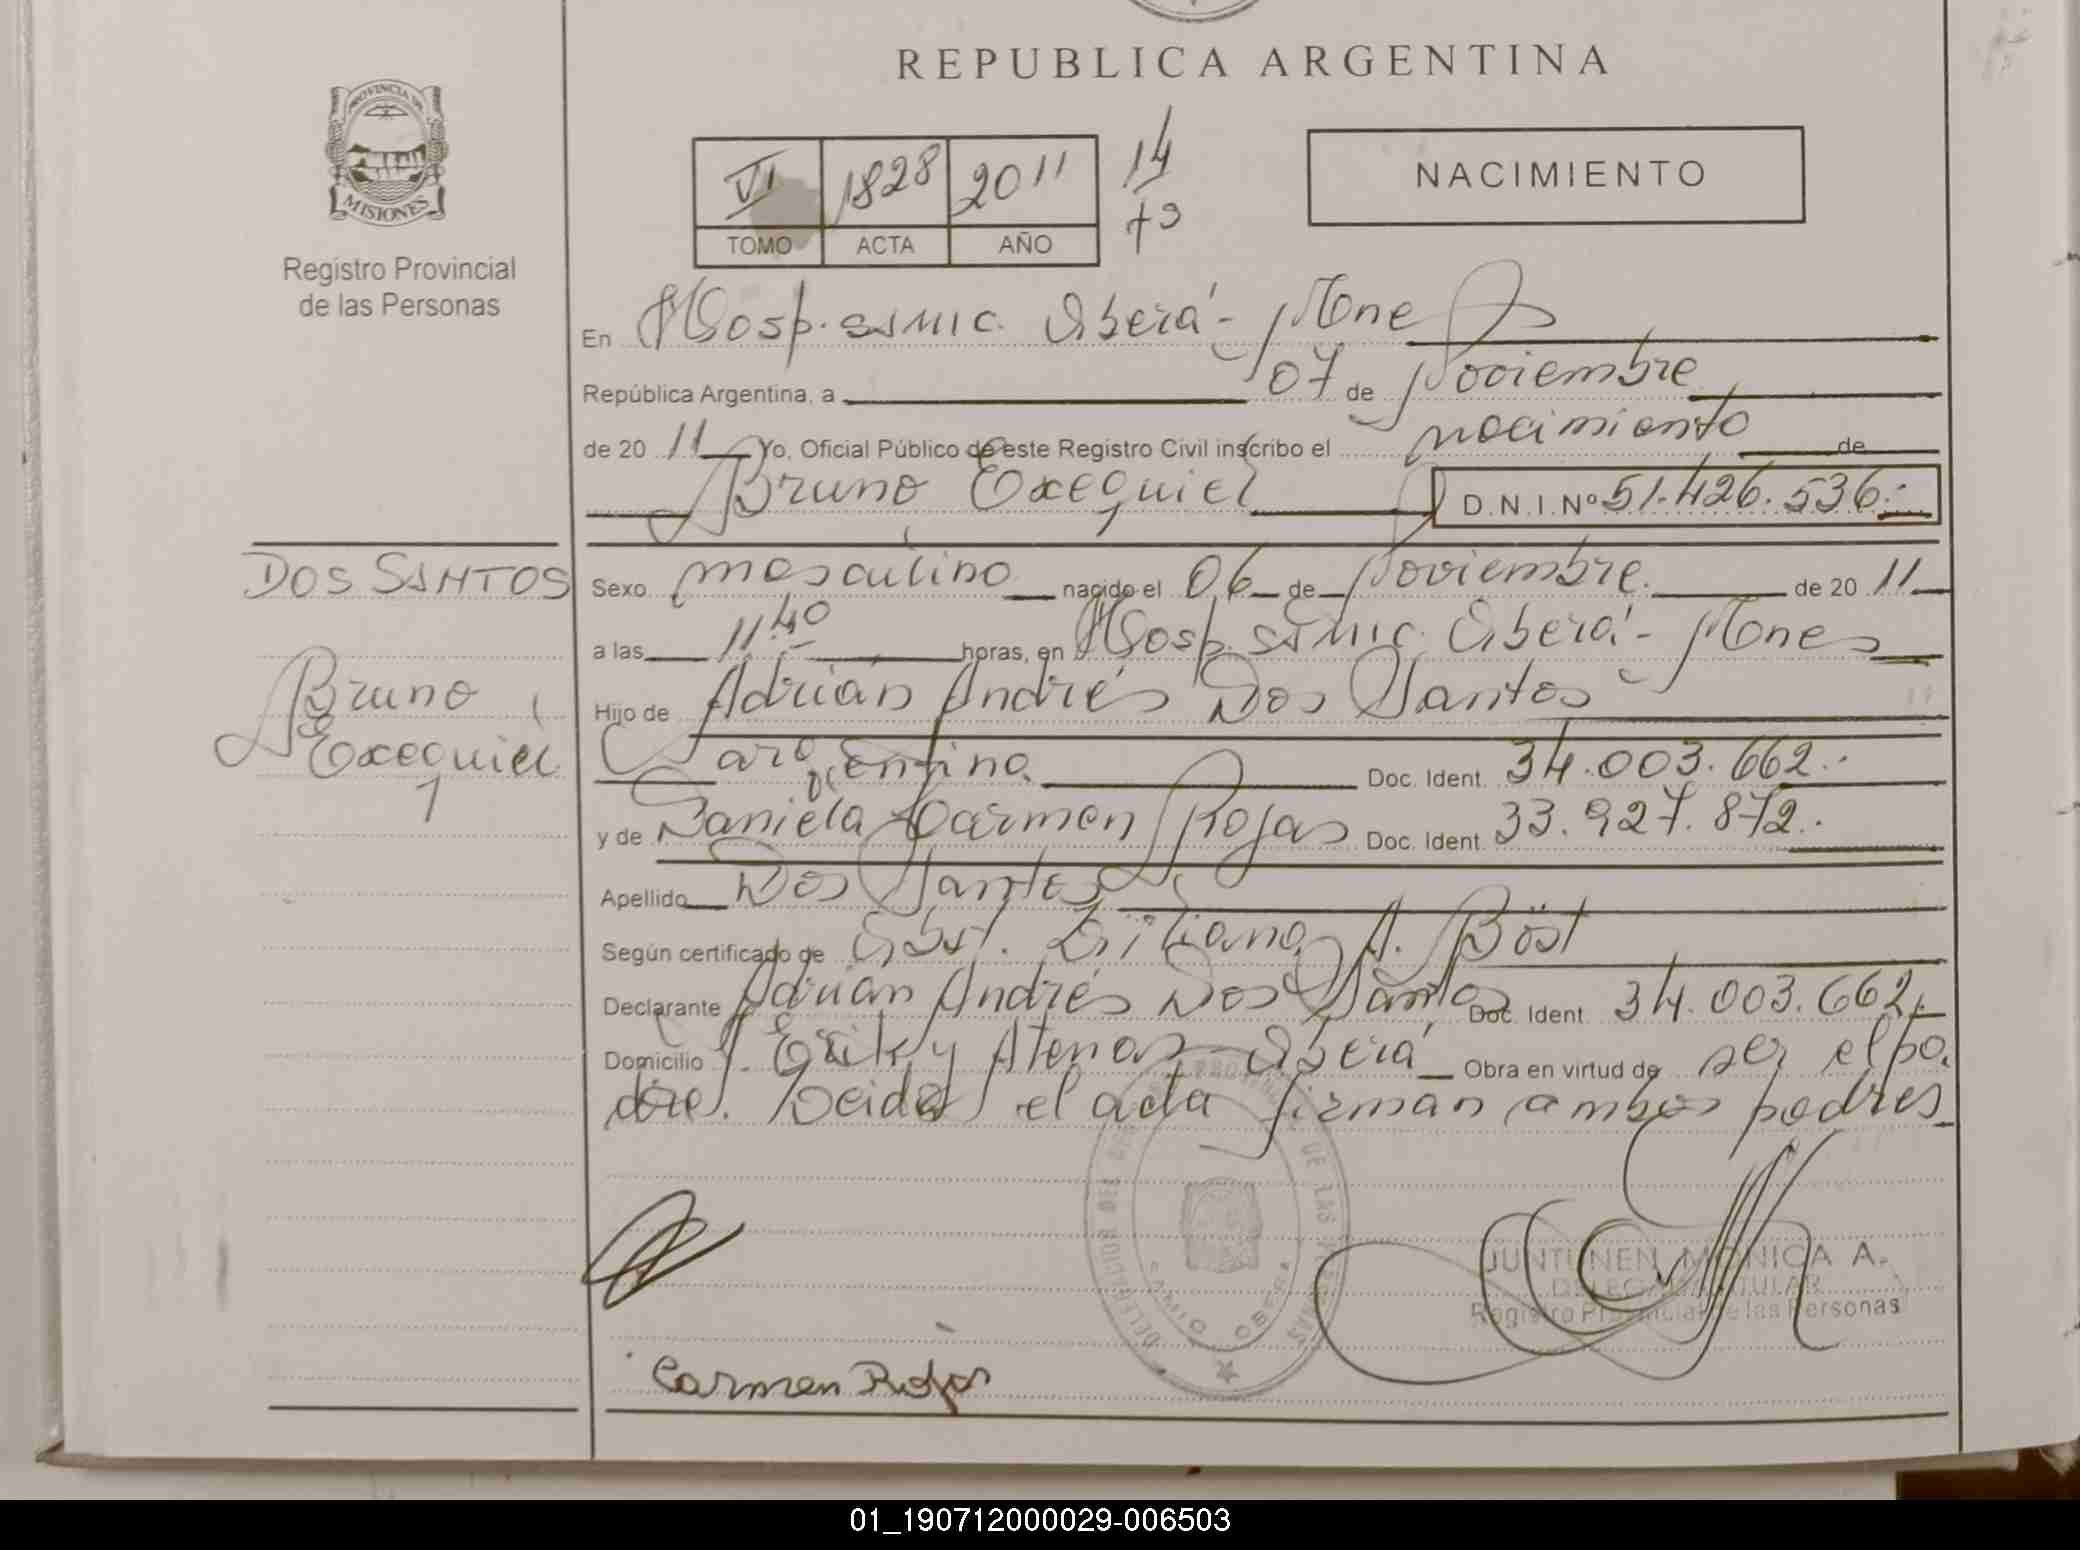 REPUBLICA ARGENTINA
PROVINCIA DE
MISIONES
Registro Provincial
de las Personas
VI 1828 2011
TOMO ACTA AÑO
14
NACIMIENTO
En Hosp. SAMIC. Oberá - Mnes
República Argentina, a 07 de Noviembre
de 2011 Yo, Oficial Público de este Registro Civil inscribo el nacimiento de
Bruno Exequiel D.N.I.Nº 51.426.536.-
DOS SANTOS
Bruno
Exequiel
1
Sexo masculino nacido el 06 de Noviembre. de 2011
a las 11:40 horas, en Hosp. SAMIC. Oberá - Mnes
Hijo de Adrián Andrés Dos Santos
argentino Doc. Ident. 34.003.662.-
y de Daniela Carmen Rojas Doc. Ident. 33.927.872.-
Apellido Dos Santos
Según certificado de Obst. Liliana A. Böst
Declarante Adrián Andrés Dos Santos Doc. Ident. 34.003.662.-
Domicilio y Atenas - Oberá Obra en virtud de ser el pa-
dre. Leida el acta firman ambos padres
JUNTUNEN MONICA A.
DELEGADA TITULAR
Registro Provincial de las Personas
SAMIC OBERA
Carmen Rojas
01_190712000029-006503